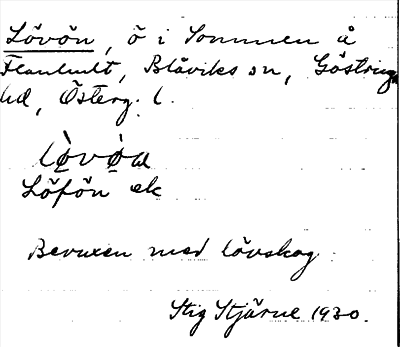 Lövön, ö i Sommen å
Flanhult, Blåviks sn, Göstrings
hd, Österg. l.
Löfön ek
Bevuxen med lövskog
Stig Stjärne 1930.